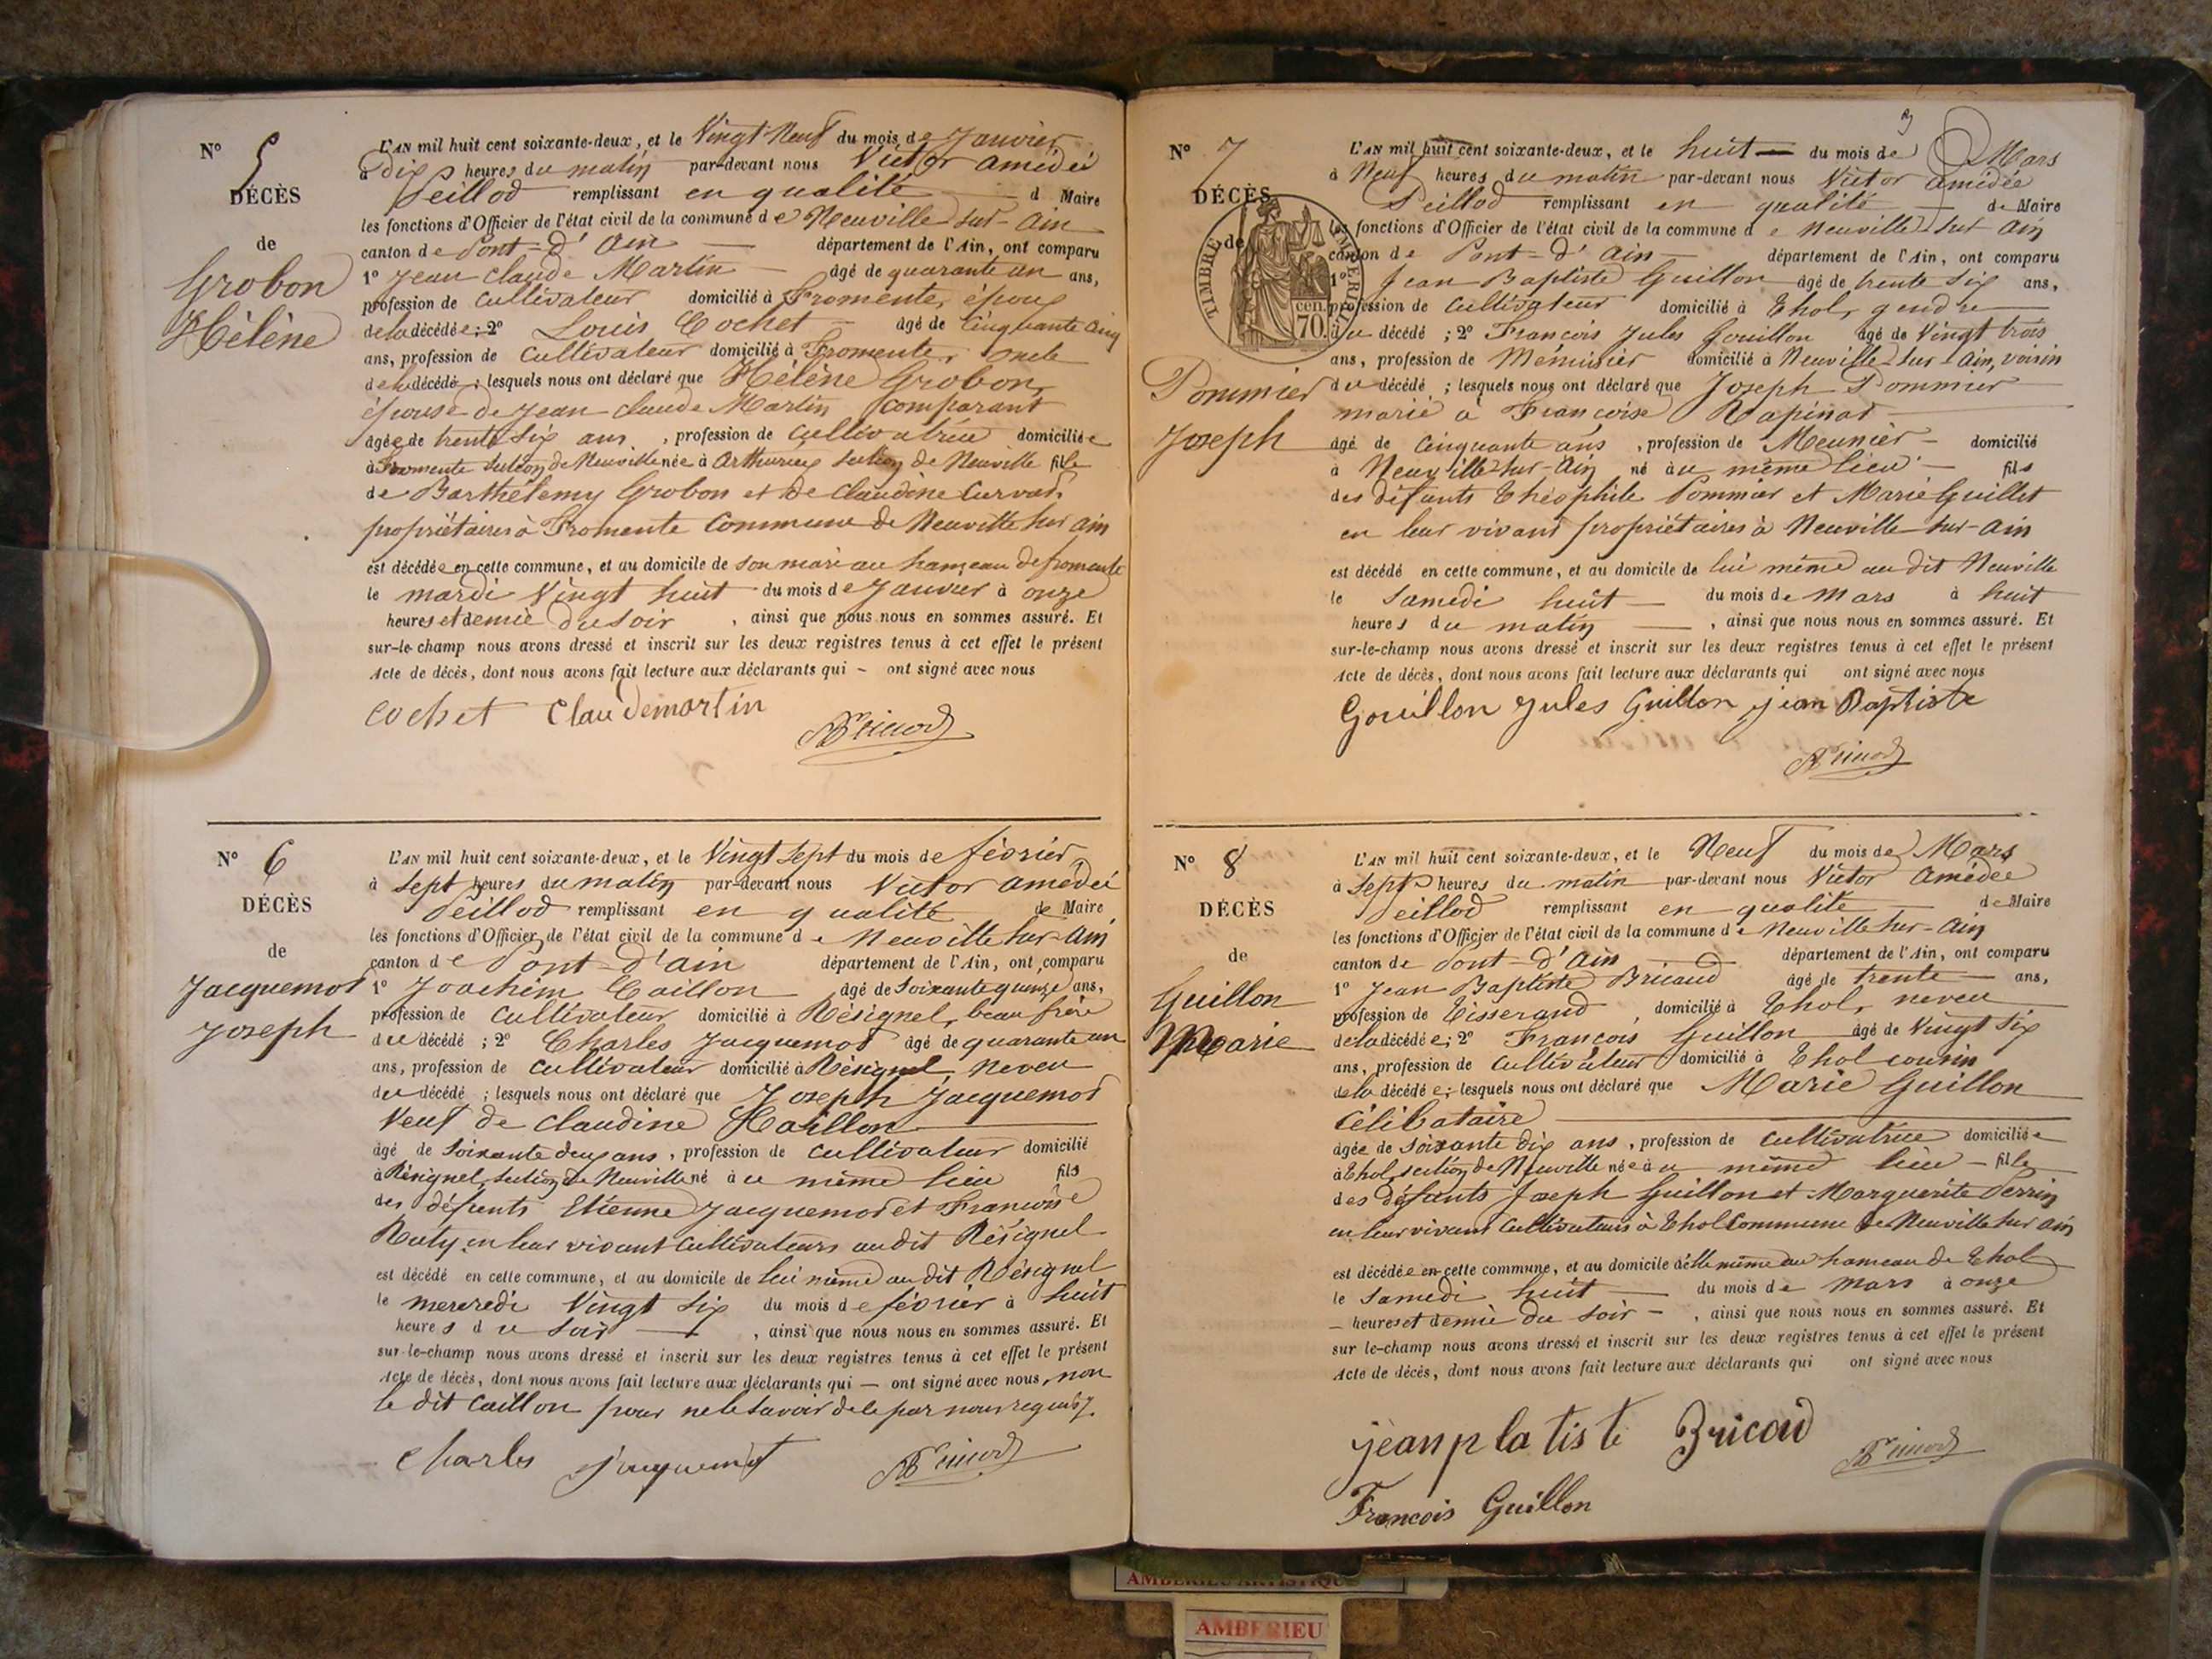 N° 5
DÉCÈS
de
Grobon
Hélène
L'AN mil huit cent soixante-deux, et le Vingt Neuf du mois de Janvier
à dix heures du matin par-devant nous Victor amédéé
Peillod remplissant en qualité d Maire
les fonctions d'Officier de l'état civil de la commune de Neuville sur-ain
canton de Pont-d'ain département de l'Ain, ont comparu
1° Jean claude Martin âgé de quarante un ans,
profession de cultivateur domicilié à Fromente, époux
de la décédée; 2° Louis Cochet âgé de Cinquante cinq
ans, profession de cultivateur domicilié à Fromente, oncle
de la décédé ; lesquels nous ont déclaré que Hélène Grobon,
épouse de Jean-claude Martin comparant
âgée de trente six ans , profession de cultivatrice domiciliée
à Fromente section de Neuville née à Arthurieux section de Neuville fille
de Barthélemy Grobon et de claudine Curvat
propriétaires à Fromente Commune de Neuville sur ain
est décédée en cette commune, et au domicile de son mari au hameau de fromente
le mardi Vingt huit du mois de Janvier à onze
heures et demie du soir , ainsi que nous nous en sommes assuré. Et
sur-le-champ nous avons dressé et inscrit sur les deux registres tenus à cet effet le présent
Acte de décès, dont nous avons fait lecture aux déclarants qui – ont signé avec nous
cochet Claudemartin
N° 6
DÉCÈS
de
Jacquemod
Joseph
L'AN mil huit cent soixante-deux, et le Vingt sept du mois de février
à sept heures du matin par-devant nous Victor amédéé
Peillod remplissant en qualité de Maire
les fonctions d'Officier de l'état civil de la commune de Neuville sur-ain
canton de Pont-d'ain département de l'Ain, ont comparu
1° Joachim Caillon âgé de soixante quinze ans,
profession de cultivateur domicilié à Résignel, beau frère
du décédé ; 2° Charles Jacquemod âgé de quarante un
ans, profession de cultivateur domicilié à Résignel, neveu
du décédé ; lesquels nous ont déclaré que Joseph Jacquemod
Veuf de Claudine
âgé de soixante deux ans , profession de cultivateur domicilié
à Résignel, section de Neuville né au même lieu fils
des défunts Etienne Jacquemod et Françoise
en leur vivant cultivateurs au dit Résignel
est décédé en cette commune, et au domicile de lui même au dit Résignel
le mercredi Vingt six du mois de février à huit
heures du soir , ainsi que nous nous en sommes assuré. Et
sur-le-champ nous avons dressé et inscrit sur les deux registres tenus à cet effet le présent
Acte de décès, dont nous avons fait lecture aux déclarants qui — ont signé avec nous, non
le dit Caillon pour ne le savoir de ce par nous requis.
Charles Jacquemod
N° 7
DÉCÈS
de
TIMBRE IMPÉRIAL
70 cen.
Pommier
Joseph
L'AN mil huit cent soixante-deux, et le huit — du mois de Mars
à Neuf heures du matin par-devant nous Victor amédée
Peillod remplissant en qualité de Maire
les fonctions d'Officier de l'état civil de la commune de Neuville sur ain
canton de Pont-d'ain département de l'Ain, ont comparu
1° Jean Baptiste Guillon âgé de trente six ans,
profession de cultivateur domicilié à Thol, gendre
du décédé ; 2° François Jules Gouillon âgé de Vingt trois
ans, profession de Menuisier domicilié à Neuville-sur-ain, voisin
du décédé ; lesquels nous ont déclaré que Joseph Pommier
marié à Françoise Rapinat
âgé de Cinquante ans , profession de Meunier – domicilié
à Neuville sur-ain né au même lieu – fils
des défunts Théophile Pommier et Marie Guillet
en leur vivant propriétaires à Neuville-sur-ain
est décédé en cette commune, et au domicile de lui même au dit Neuville
le samedi huit du mois de mars à huit
heures du matin — , ainsi que nous nous en sommes assuré. Et
sur-le-champ nous avons dressé et inscrit sur les deux registres tenus à cet effet le présent
Acte de décès, dont nous avons fait lecture aux déclarants qui ont signé avec nous
Gouillon Jules Guillon jean Baptiste
N° 8
DÉCÈS
de
Guillon
Marie
L'AN mil huit cent soixante-deux, et le Neuf du mois de Mars
à sept heures du matin par-devant nous Victor amédée
Peillod remplissant en qualité de Maire
les fonctions d'Officier de l'état civil de la commune de Neuville sur-ain
canton de Pont-d'ain département de l'Ain, ont comparu
1° Jean Baptiste Bricaud âgé de trente ans,
profession de Tisserand , domicilié à Thol, neveu
de la décédée; 2° François Guillon âgé de Vingt six
ans, profession de cultivateur domicilié à Thol cousin
de la décédée; lesquels nous ont déclaré que Marie Guillon
Célibataire
âgée de soixante dix ans , profession de cultivatrice domiciliée
à Thol, section de Neuville née au même lieu – fille
des défunts Joseph Guillon et Marguerite Perrin
en leur vivant cultivateurs à Thol commune de Neuville sur ain
est décédée en cette commune, et au domicile d'elle même au hameau de Thol
le samedi huit du mois de mars à onze
– heures et demie du soir – , ainsi que nous nous en sommes assuré. Et
sur le-champ nous avons dressé et inscrit sur les deux registres tenus à cet effet le présent
Acte de décès, dont nous avons fait lecture aux déclarants qui ont signé avec nous
jeanplatiste Bricaud
Francois Guillon
AMBERIEU ARTISTIQUE
AMBERIEU